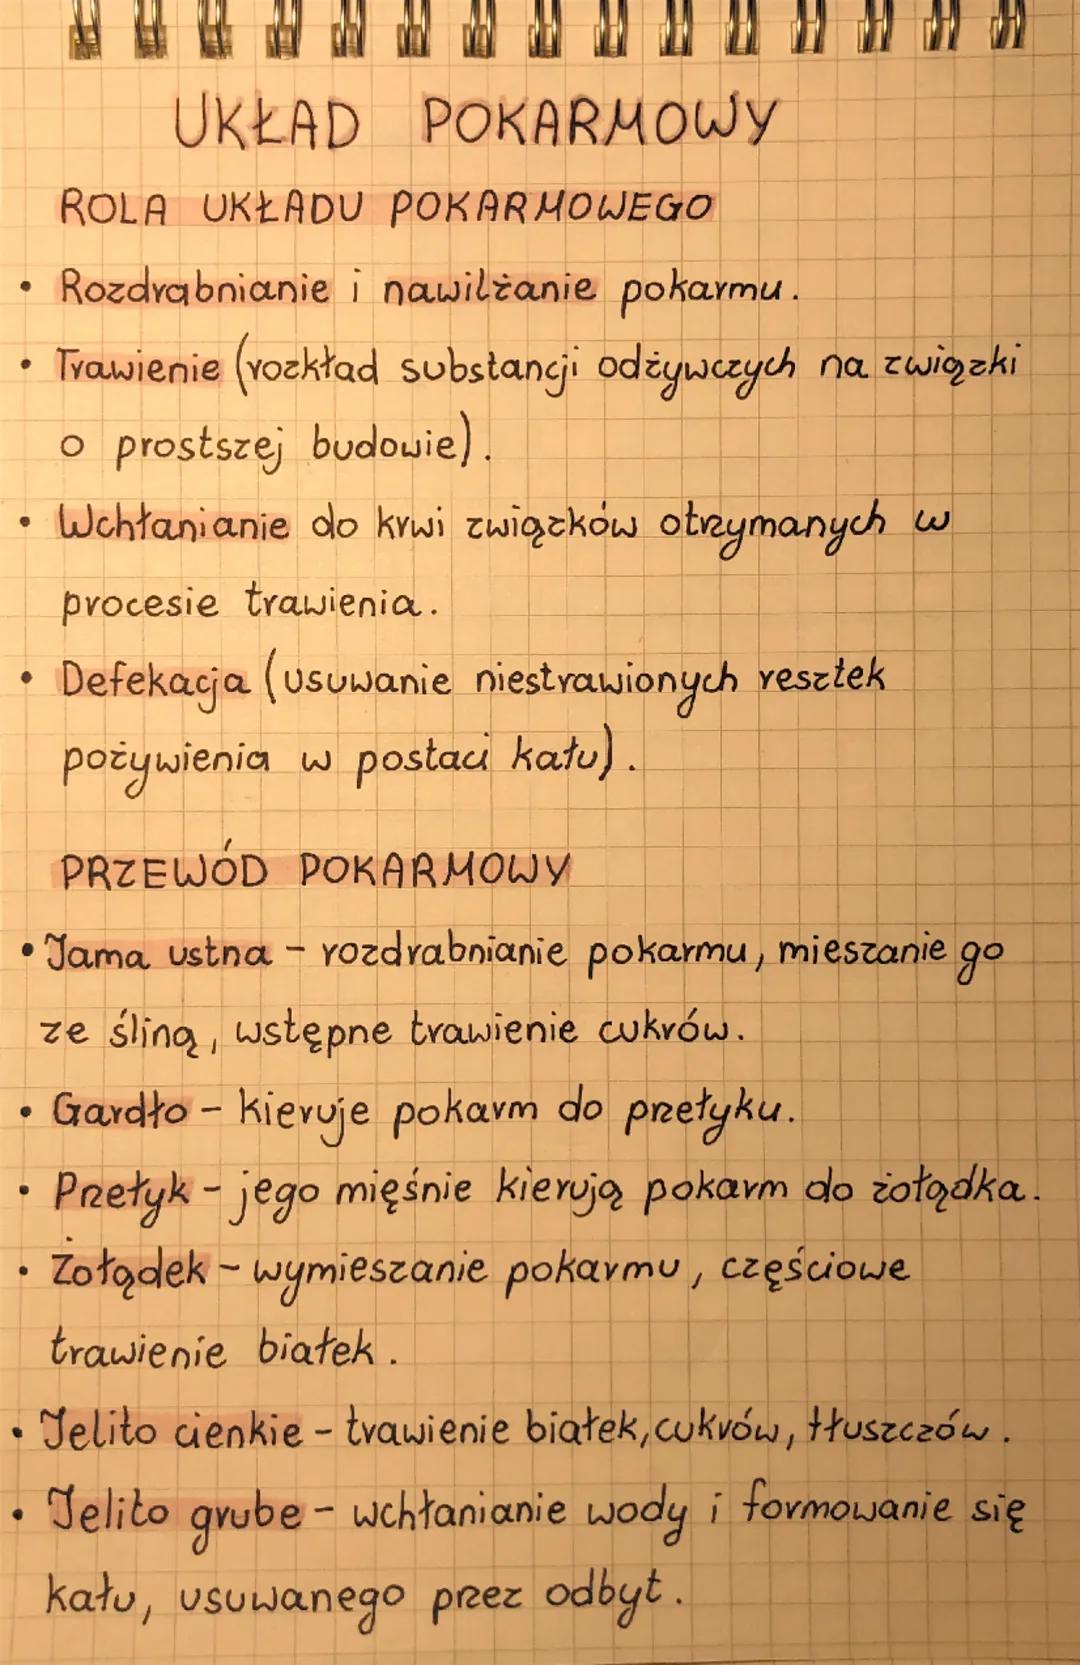 UKŁAD POKARMOWY
ROLA UKŁADU POKARMOWEGO
• Rozdrabnianie i nawilżanie pokarmu.
• Trawienie (rozkład substancji odżywczych na związki
o prostszej budowie).
• Wchłanianie do krwi związków otrzymanych w
procesie trawienia.
• Defekacja (usuwanie niestrawionych resztek
pożywienia w postaci kału).
PRZEWÓD POKARMOWY
• Jama ustna – rozdrabnianie pokarmu, mieszanie go
ze śliną, wstępne trawienie cukrów.
• Gardło – kieruje pokarm do przełyku.
• Przełyk – jego mięśnie kierują pokarm do żołądka.
• Żołądek – wymieszanie pokarmu, częściowe
trawienie białek.
• Jelito cienkie – trawienie białek, cukrów, tłuszczów.
• Jelito grube – wchłanianie wody i formowanie się
kału, usuwanego przez odbyt.